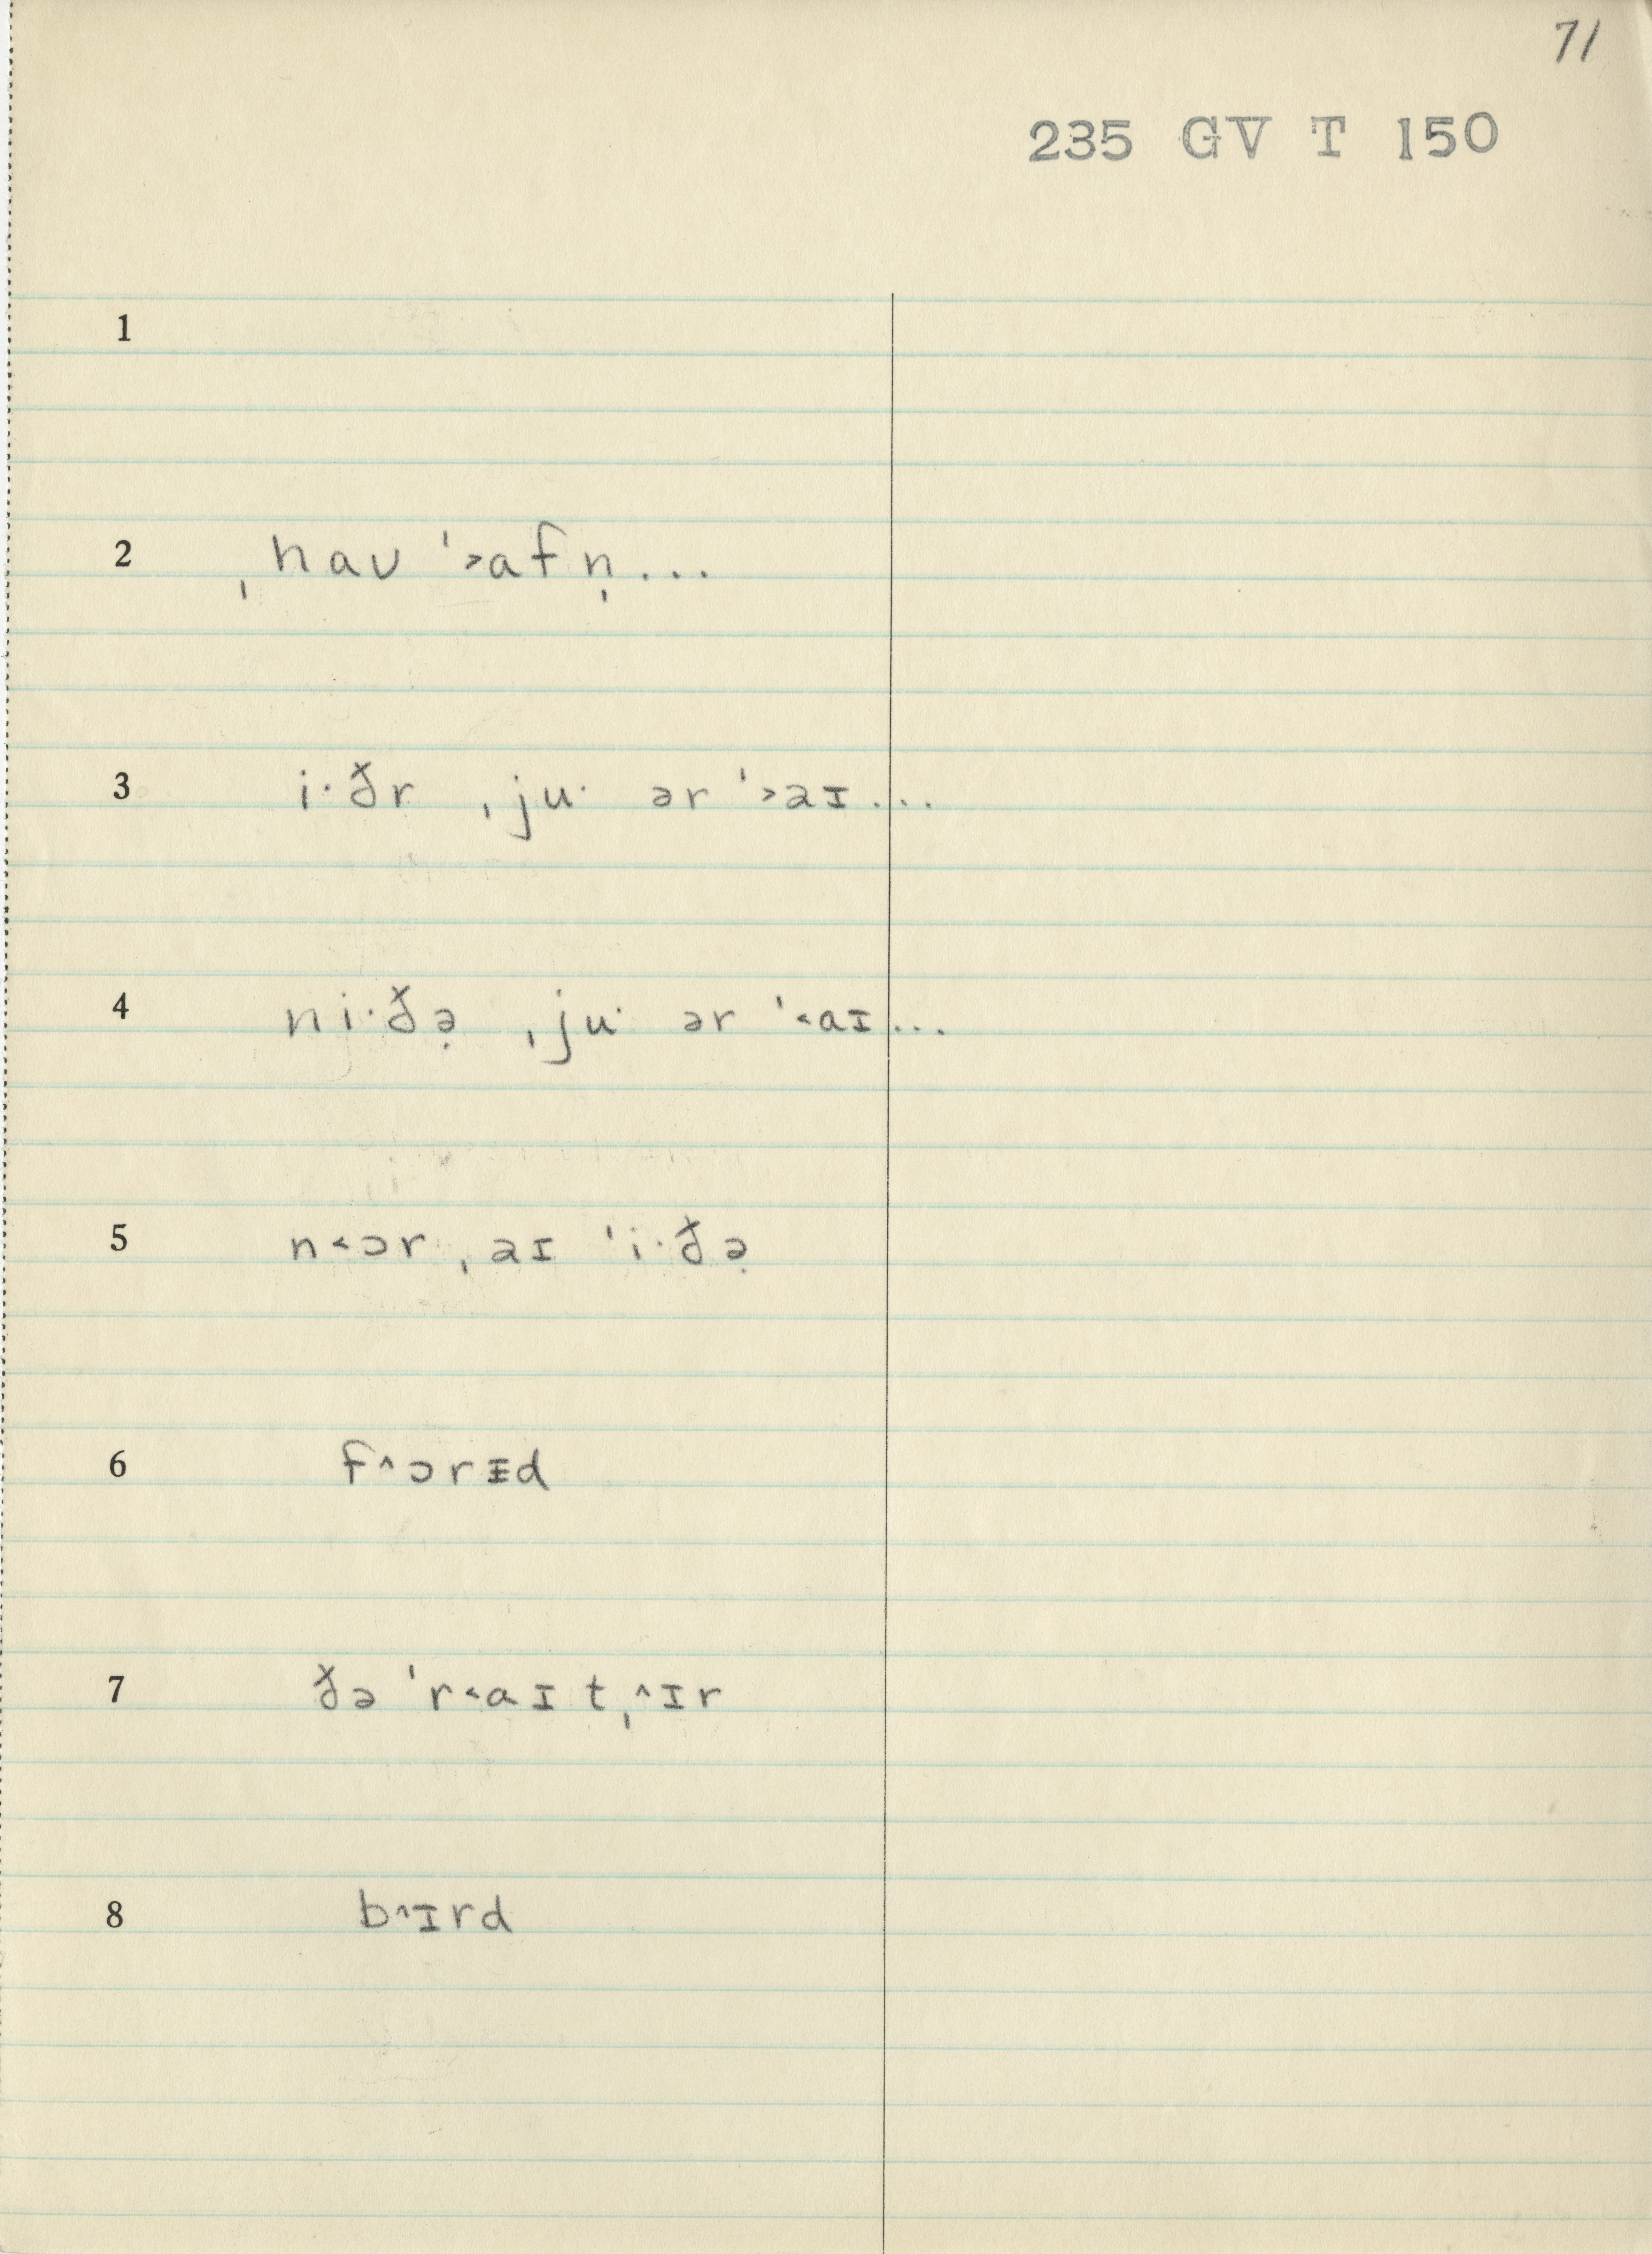 71
235 GV T 150
1
2 ˌhaʊ ˈ˃afn̩...
3 i·ðr ˌju· ər ˈ˃aɪ...
4 ni·ðə̣ ˌju· ər ˈ˂aɪ...
5 n˂ɔr ˌaɪ ˈi·ðə̣
6 f˄ɔrᵻd
7 ðə ˈr˂aɪtˌ˄ɪr
8 b˄ɪrd